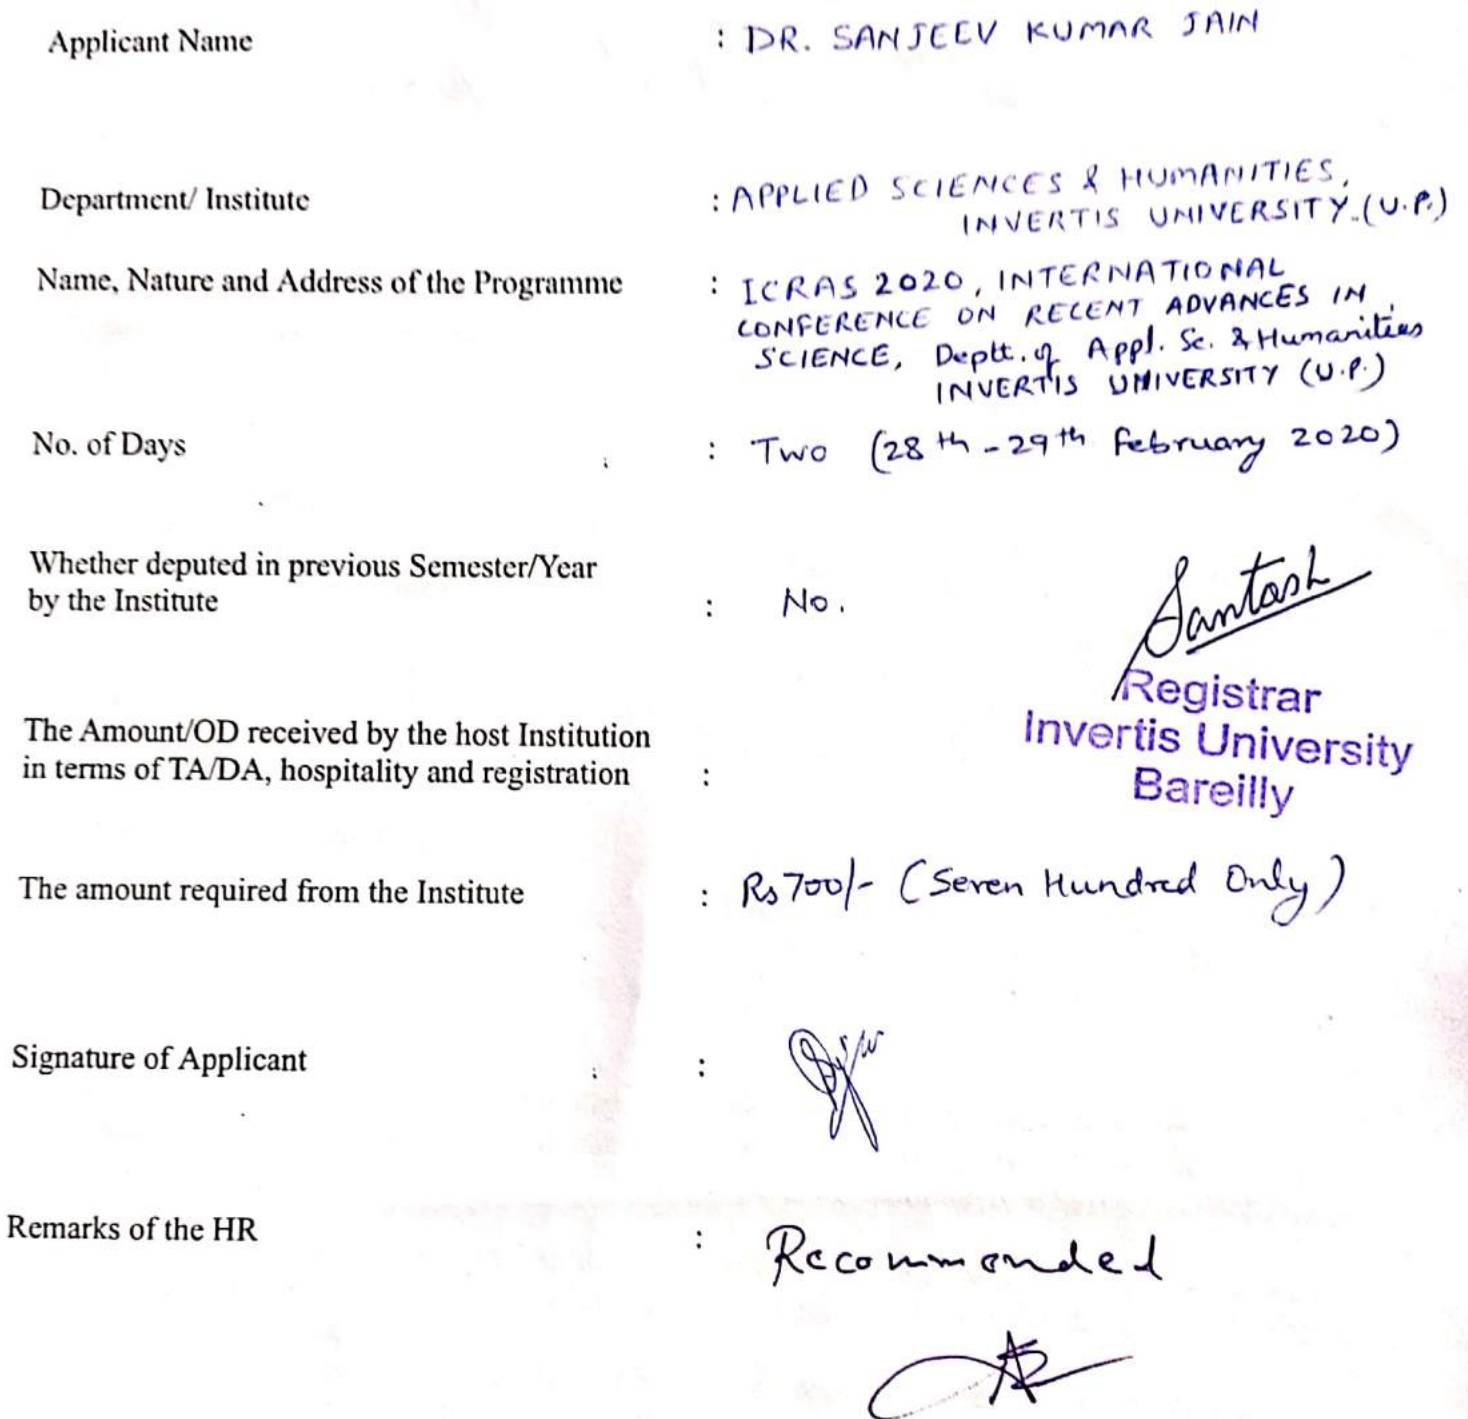 Applicant Name : DR. SANJEEV KUMAR JAIN
Department/ Institute : APPLIED SCIENCES & HUMANITIES,
INVERTIS UNIVERSITY.(U.P.)
Name, Nature and Address of the Programme : ICRAS 2020, INTERNATIONAL
CONFERENCE ON RECENT ADVANCES IN
SCIENCE, Deptt. of Appl. Sc. & Humanities
INVERTIS UNIVERSITY (U.P.)
No. of Days : Two (28th - 29th February 2020)
Whether deputed in previous Semester/Year
by the Institute : No.
Santosh
Registrar
Invertis University
Bareilly
The Amount/OD received by the host Institution
in terms of TA/DA, hospitality and registration :
The amount required from the Institute : Rs 700/- (Seven Hundred Only)
Signature of Applicant :
Remarks of the HR : Recommended